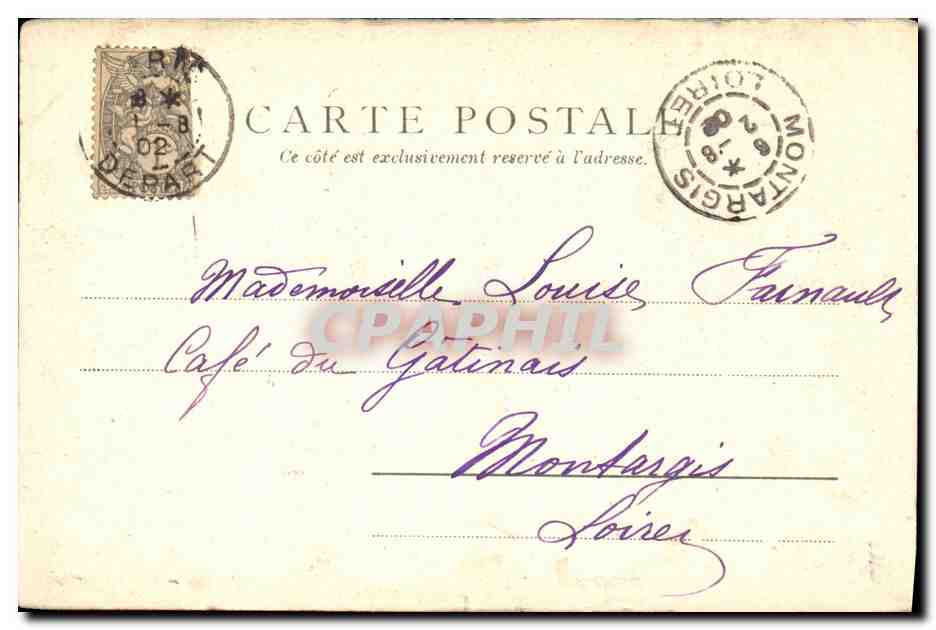 CARTE POSTALE
Ce côté est exclusivement reservé à l'adresse.
8 *
1-8
02
DEPART
MONTARGIS
LOIRET
Mademoiselle Louise
Café du Gâtinais
Montargis
Loiret
CPAPHIL